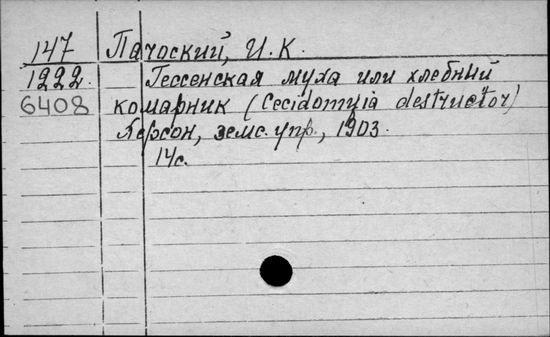 147 Пачоский, И. К.
1222. Гессенская муха или хлебний
6408 комарник (Cecidomyia destructor)
Херсон, земс. упр., 1903.
14с.